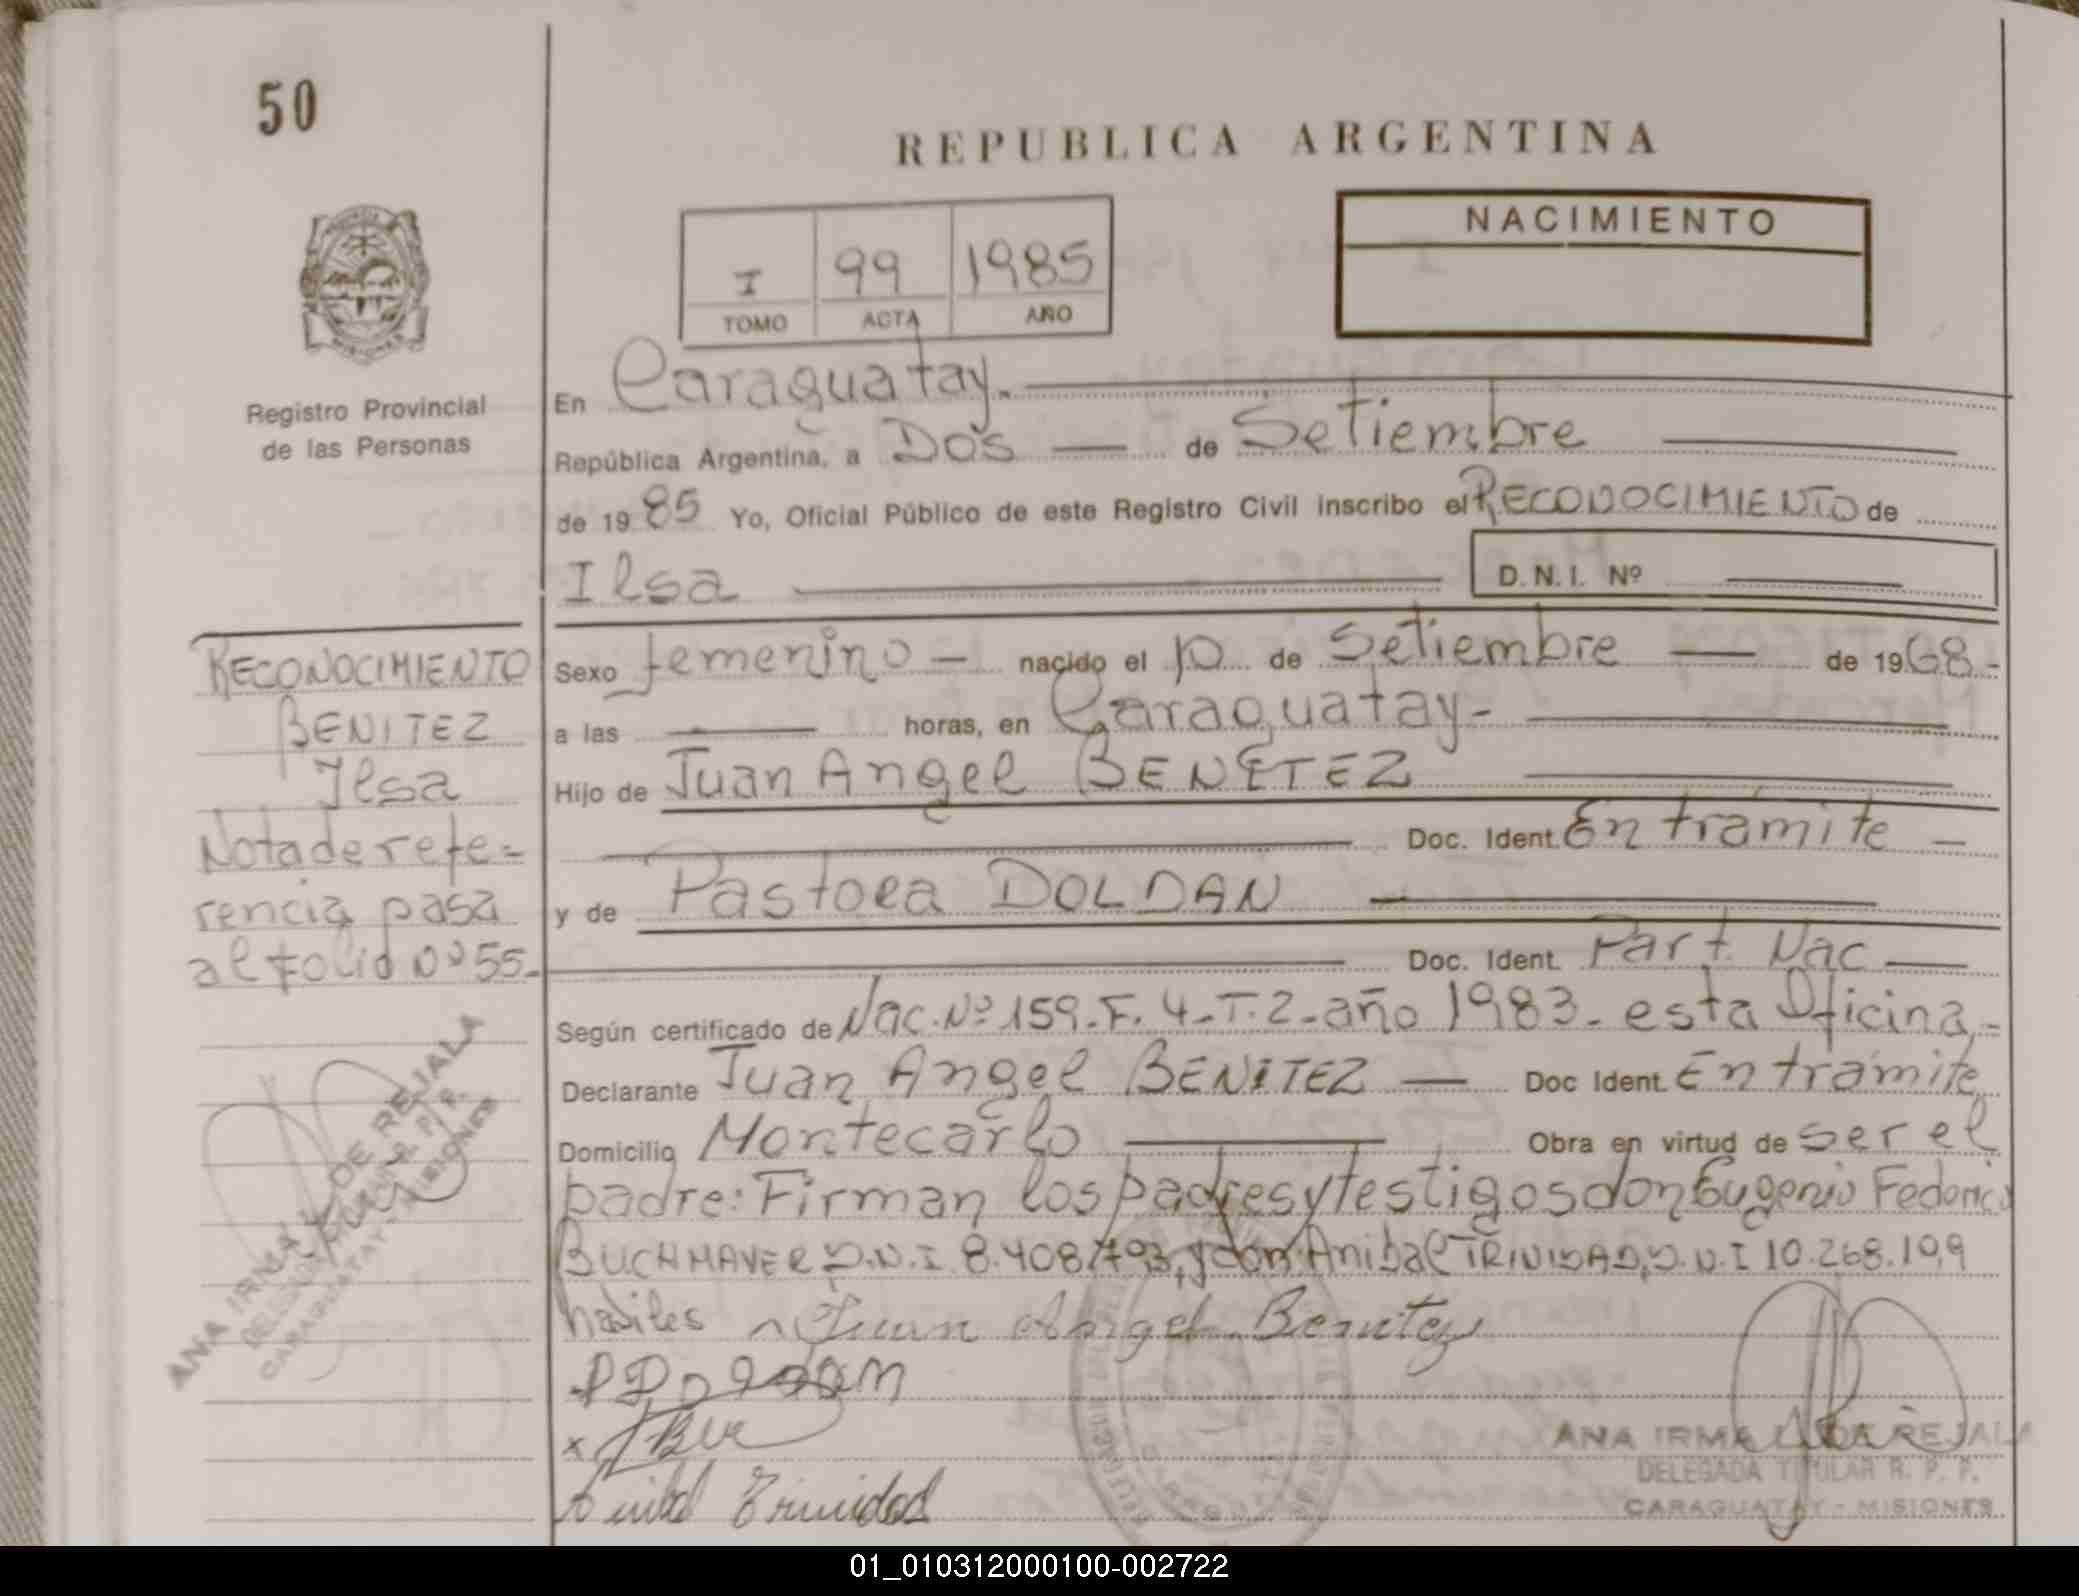 50
REPUBLICA ARGENTINA
NACIMIENTO
I 99 1985
TOMO ACTA AÑO
MISIONES
Registro Provincial
de las Personas
En Caraguatay.
República Argentina, a Dos de Setiembre
de 1985 Yo, Oficial Público de este Registro Civil inscribo el RECONOCIMIENTO de
Ilsa D.N.I. Nº
Sexo femenino - nacido el 10 de Setiembre de 1968.
a las horas, en Caraguatay-
Hijo de Juan Angel BENITEZ
Doc. Ident. En tramite -
y de Pastora DOLDAN
Doc. Ident. Part. Nac
Según certificado de Nac. Nº 159. F. 4-T. 2-año 1983. esta Oficina,-
Declarante Juan Angel BENITEZ Doc Ident. En tramite
Domicilio Montecarlo Obra en virtud de ser el
padre: Firman los padres y testigos don Eugenio Federico
BUCHMAYER D.N.I 8.408.793, y don Anibal TRINIDAD, D.N.I 10.268.199
habiles Juan Angel Benitez
Anibal Trinidad
RECONOCIMIENTO
BENITEZ
Ilsa
Nota de refe=
rencia pasa
al folio Nº 55.-
ANA IRMA DE REJALA
CARAGUATAY - MISIONES
ANA IRMA DE REJALA
DELEGADA TITULAR R. P. P.
CARAGUATAY - MISIONES
01_010312000100-002722